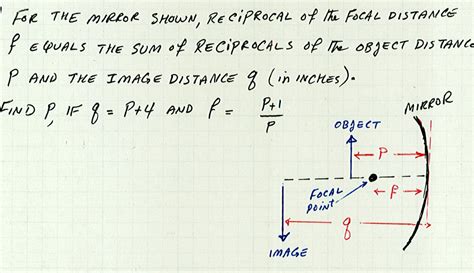 FOR THE MIRROR SHOWN, RECIPROCAL of the FOCAL DISTANCE
f EQUALS THE SUM of RECIPROCALS of The OBJECT DISTANC
P AND THE IMAGE DISTANCE q (in INCHES).
FIND P, IF q = P+4 AND f = P+1
P
MIRROR
OBJECT
P
FOCAL
POINT
f
q
IMAGE